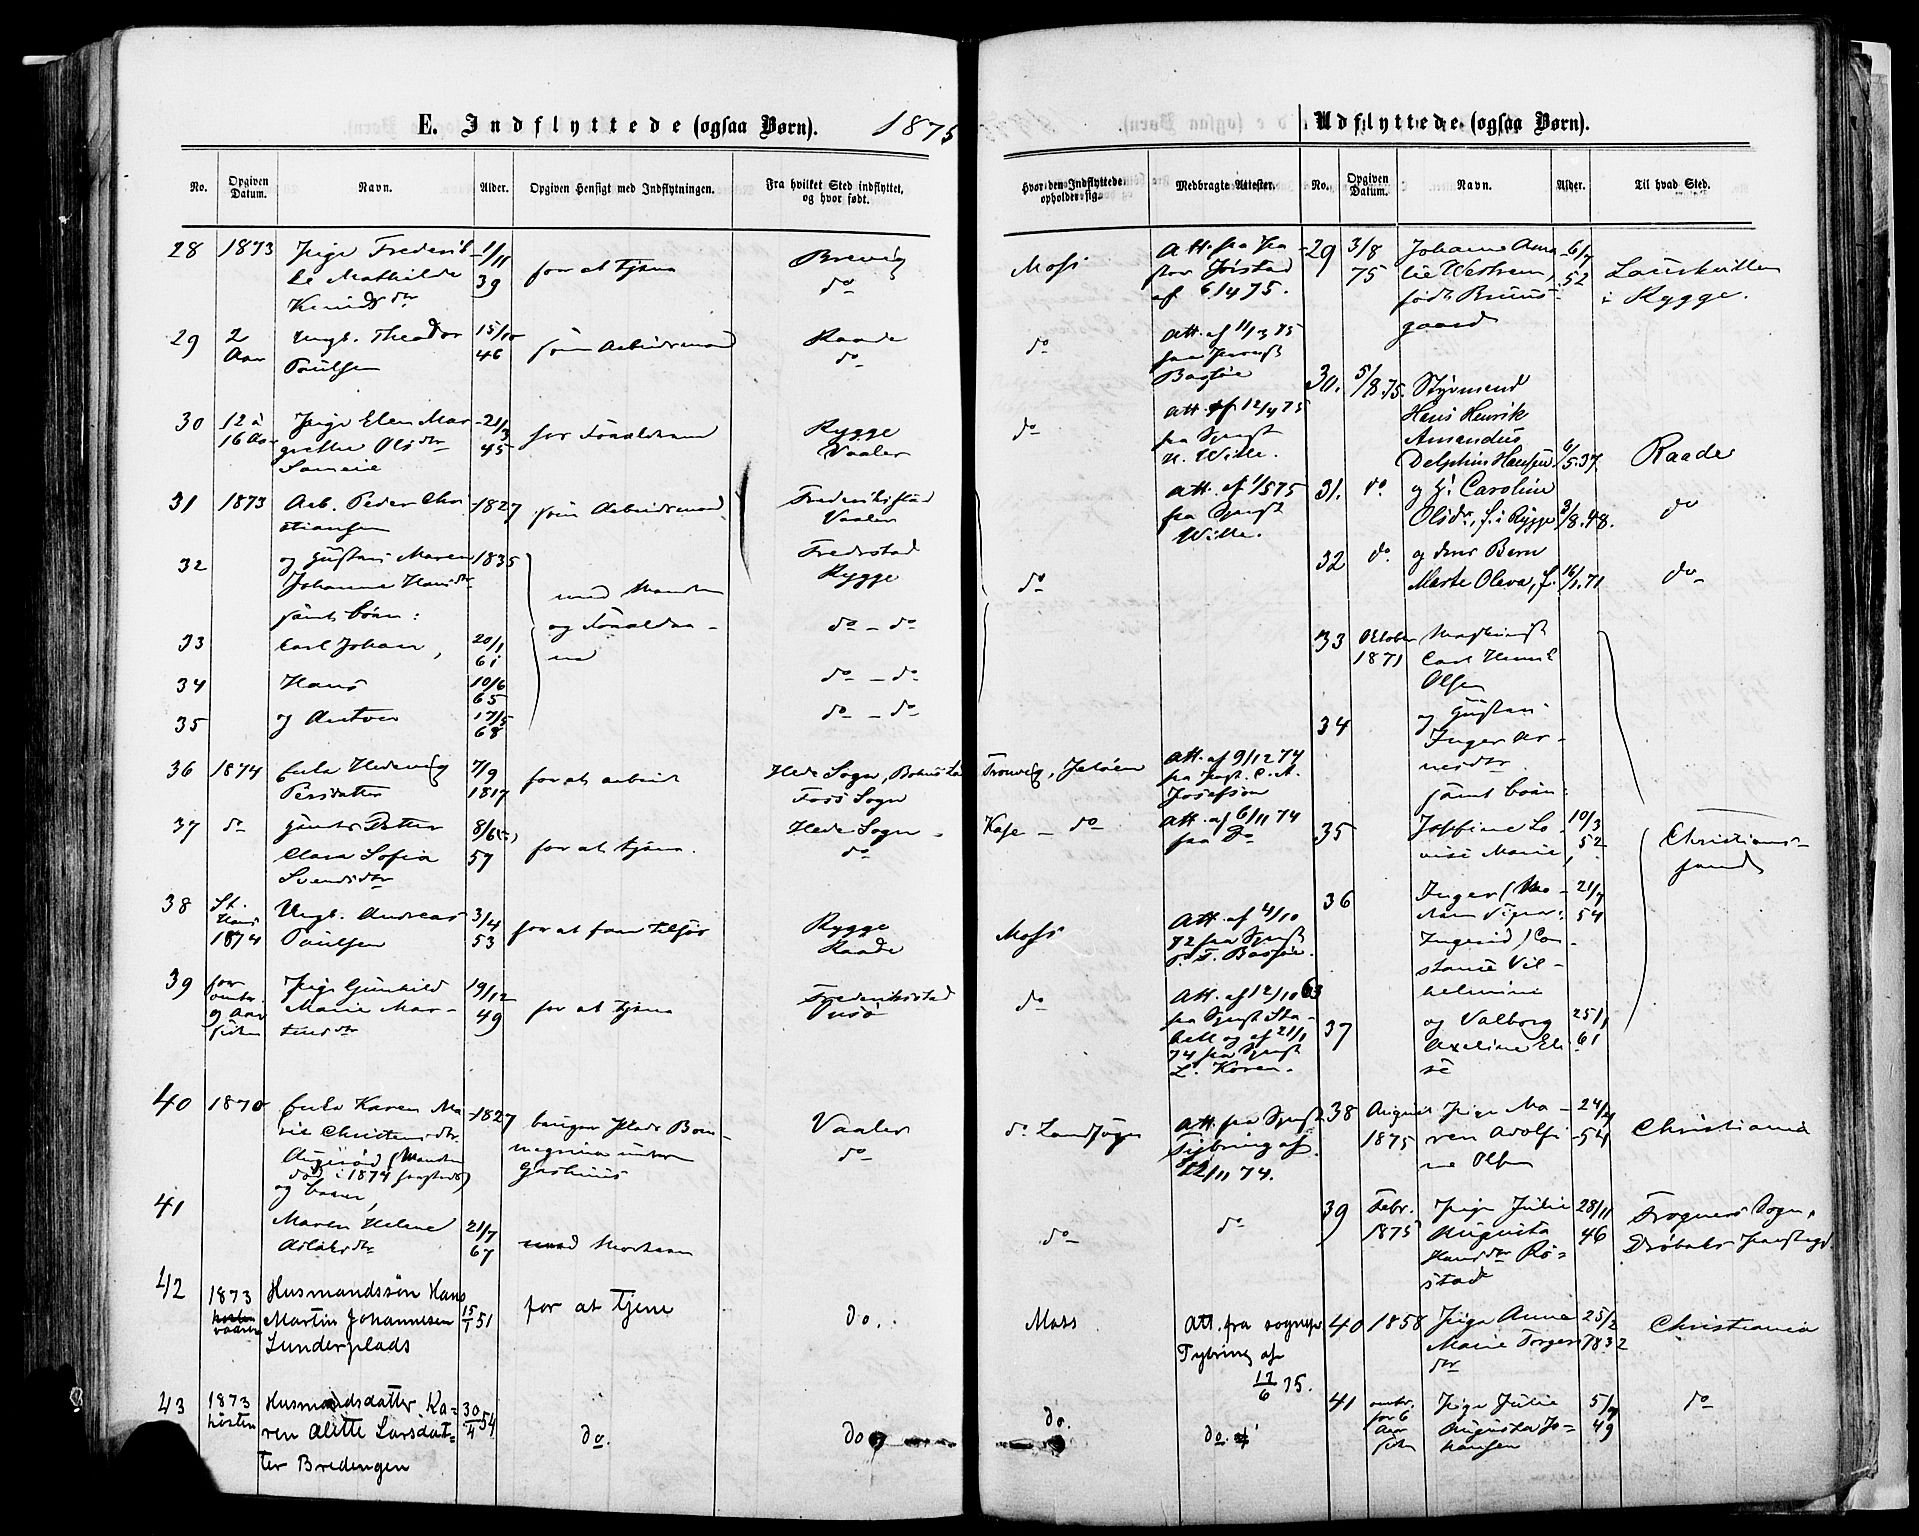 E. Indflyttede (ogsaa Børn). 1875
No.
Opgiven Datum.
Navn.
Alder.
Opgiven Hensigt med Indflytningen.
Fra hvilket Sted indflyttet, og hvor født.
28 1873 Pige Frederik- 1/11 for at tjene Brevig
ke Mathilde 39 do
Knudsdtr
29 2 Ungk. Theodor 15/10 som Arbeidsmand Raade
Aar Paulsen 46 do
30 12 à Pige Elen Mar- 21/3 for Forældrene Rygge
16 Aar grethe Olsdtr 45 Vaaler
31 1873 Arb. Peder Chri- 1827 som Arbeidsmand Frederikstad
stiansen Vaaler
32 og Hustru Maren 1835 Fredrstad
Johanne Hansdtr med Manden Rygge
samt børn: og Forældre-
33 Carl Johan, 20/1 61 ne do - do
34 Hans 10/6 65 do - do
35 og Anton 17/5 68 do - do
36 1874 Enke Hedevig 7/9 for at arbeide Hede Sogn,
Persdatter 1817 Foss Sogn
37 do hendes Datter 8/6 Hede Sogn
Clara Sofia 57 for at tjene. do
Svendsdtr
38 St. Ungk. Andreas 3/4 for at fare tilsøs Rygge
Hans 1874 Paulsen 53 Raade
39 for Pige Gunhild 19/12 for at tjene Frederiksstad
omtr. Marie Mar- 49 Onsø
9 Aar siden tinsdtr
40 1870 Enke Karen Ma- 1827 Vaaler
rie Christensdtr. do
(Manden
død i 1874
og barn,
41 Maren Helene 21/7
67 med Moderen
42 1873 Husmandssøn Hans 15/1 51 for at tjene do.
vaaren Martin Johannesen
Sunderplads
43 1873 Husmandsdatter Ka- 30/4 54 do. do
høsten ren Alette Larsdat-
ter Bredengen
Udflyttede (ogsaa Børn).
Hvor den Indflyttede opholder sig.
Medbragte Attester.
No.
Opgiven Datum.
Navn.
Alder.
Til hvad Sted.
Moss Att. fra Pa- 29 3/8 Johanne Ama- 6/7
stor Jørstad 75 lie Westrem, 52
af 6/4 75. født Bruus- i Rygge.
gaard
do Att. af 11/3 75
Bassøe 30. 5/8 75. Styrmand
do Att. af 12/4 75 Hans Henrik
fra Spræst Amandus
N. Wille. Delphin Hansen 6/5.37 Raade
Att. af 1/5 75 31. do. og H. Caroline
fra Spræst Olsdr, f. i Rygge 2/8.48. do
Wille. 32 do. og deres Barn
do Marte Oleva, f. 16/1.71 do
33 Oktober Maskinist
1871 Carl Henrik
Olsen
34 og Hustru
Inger Ar-
nesdtr
Tronvig, Jeløen Att. af 9/12 74 samt børn:
fra Past. C. A.
Josefson
Kase - do Att. af 6/11 74 35 Josfine Lo- 10/3 Christians-
fra do vise Marie, 52 sand
36 Inger 21/7
54
Moss Att. af 4/10
72 fra Spræst Ingerid) Con-
Bassøe. stance Vil-
helmine
do Att. af 12/10 63
fra Spræst Sta- 37 og Valborg 25/1
bell og af 21/1 Axeline Eli- 61
74 fra Spræst se
L. Koren.
do Landsogn Att. fra Spræst 38 August Pige Ma- 24/4 Christiania
Tybring af 1875 ren Adolfi- 54
12/11 74. ne Olsen
do do 39 Febr. Pige Julie 28/11 Frogners Sogn,
1875 Augusta 46 Drøbaks Præstegd.
Hansdtr Rø-
stad
Moss Att. fra sognepr. 40 1858 Pige Anne 25/2 Christiania
Tybring af Marie Torgers- 1832
17/6 75. dtr
do. do. 41 omtr. Pige Julie 5/9 do
for 6 Augusta Jo- 49
Aar siden hansen